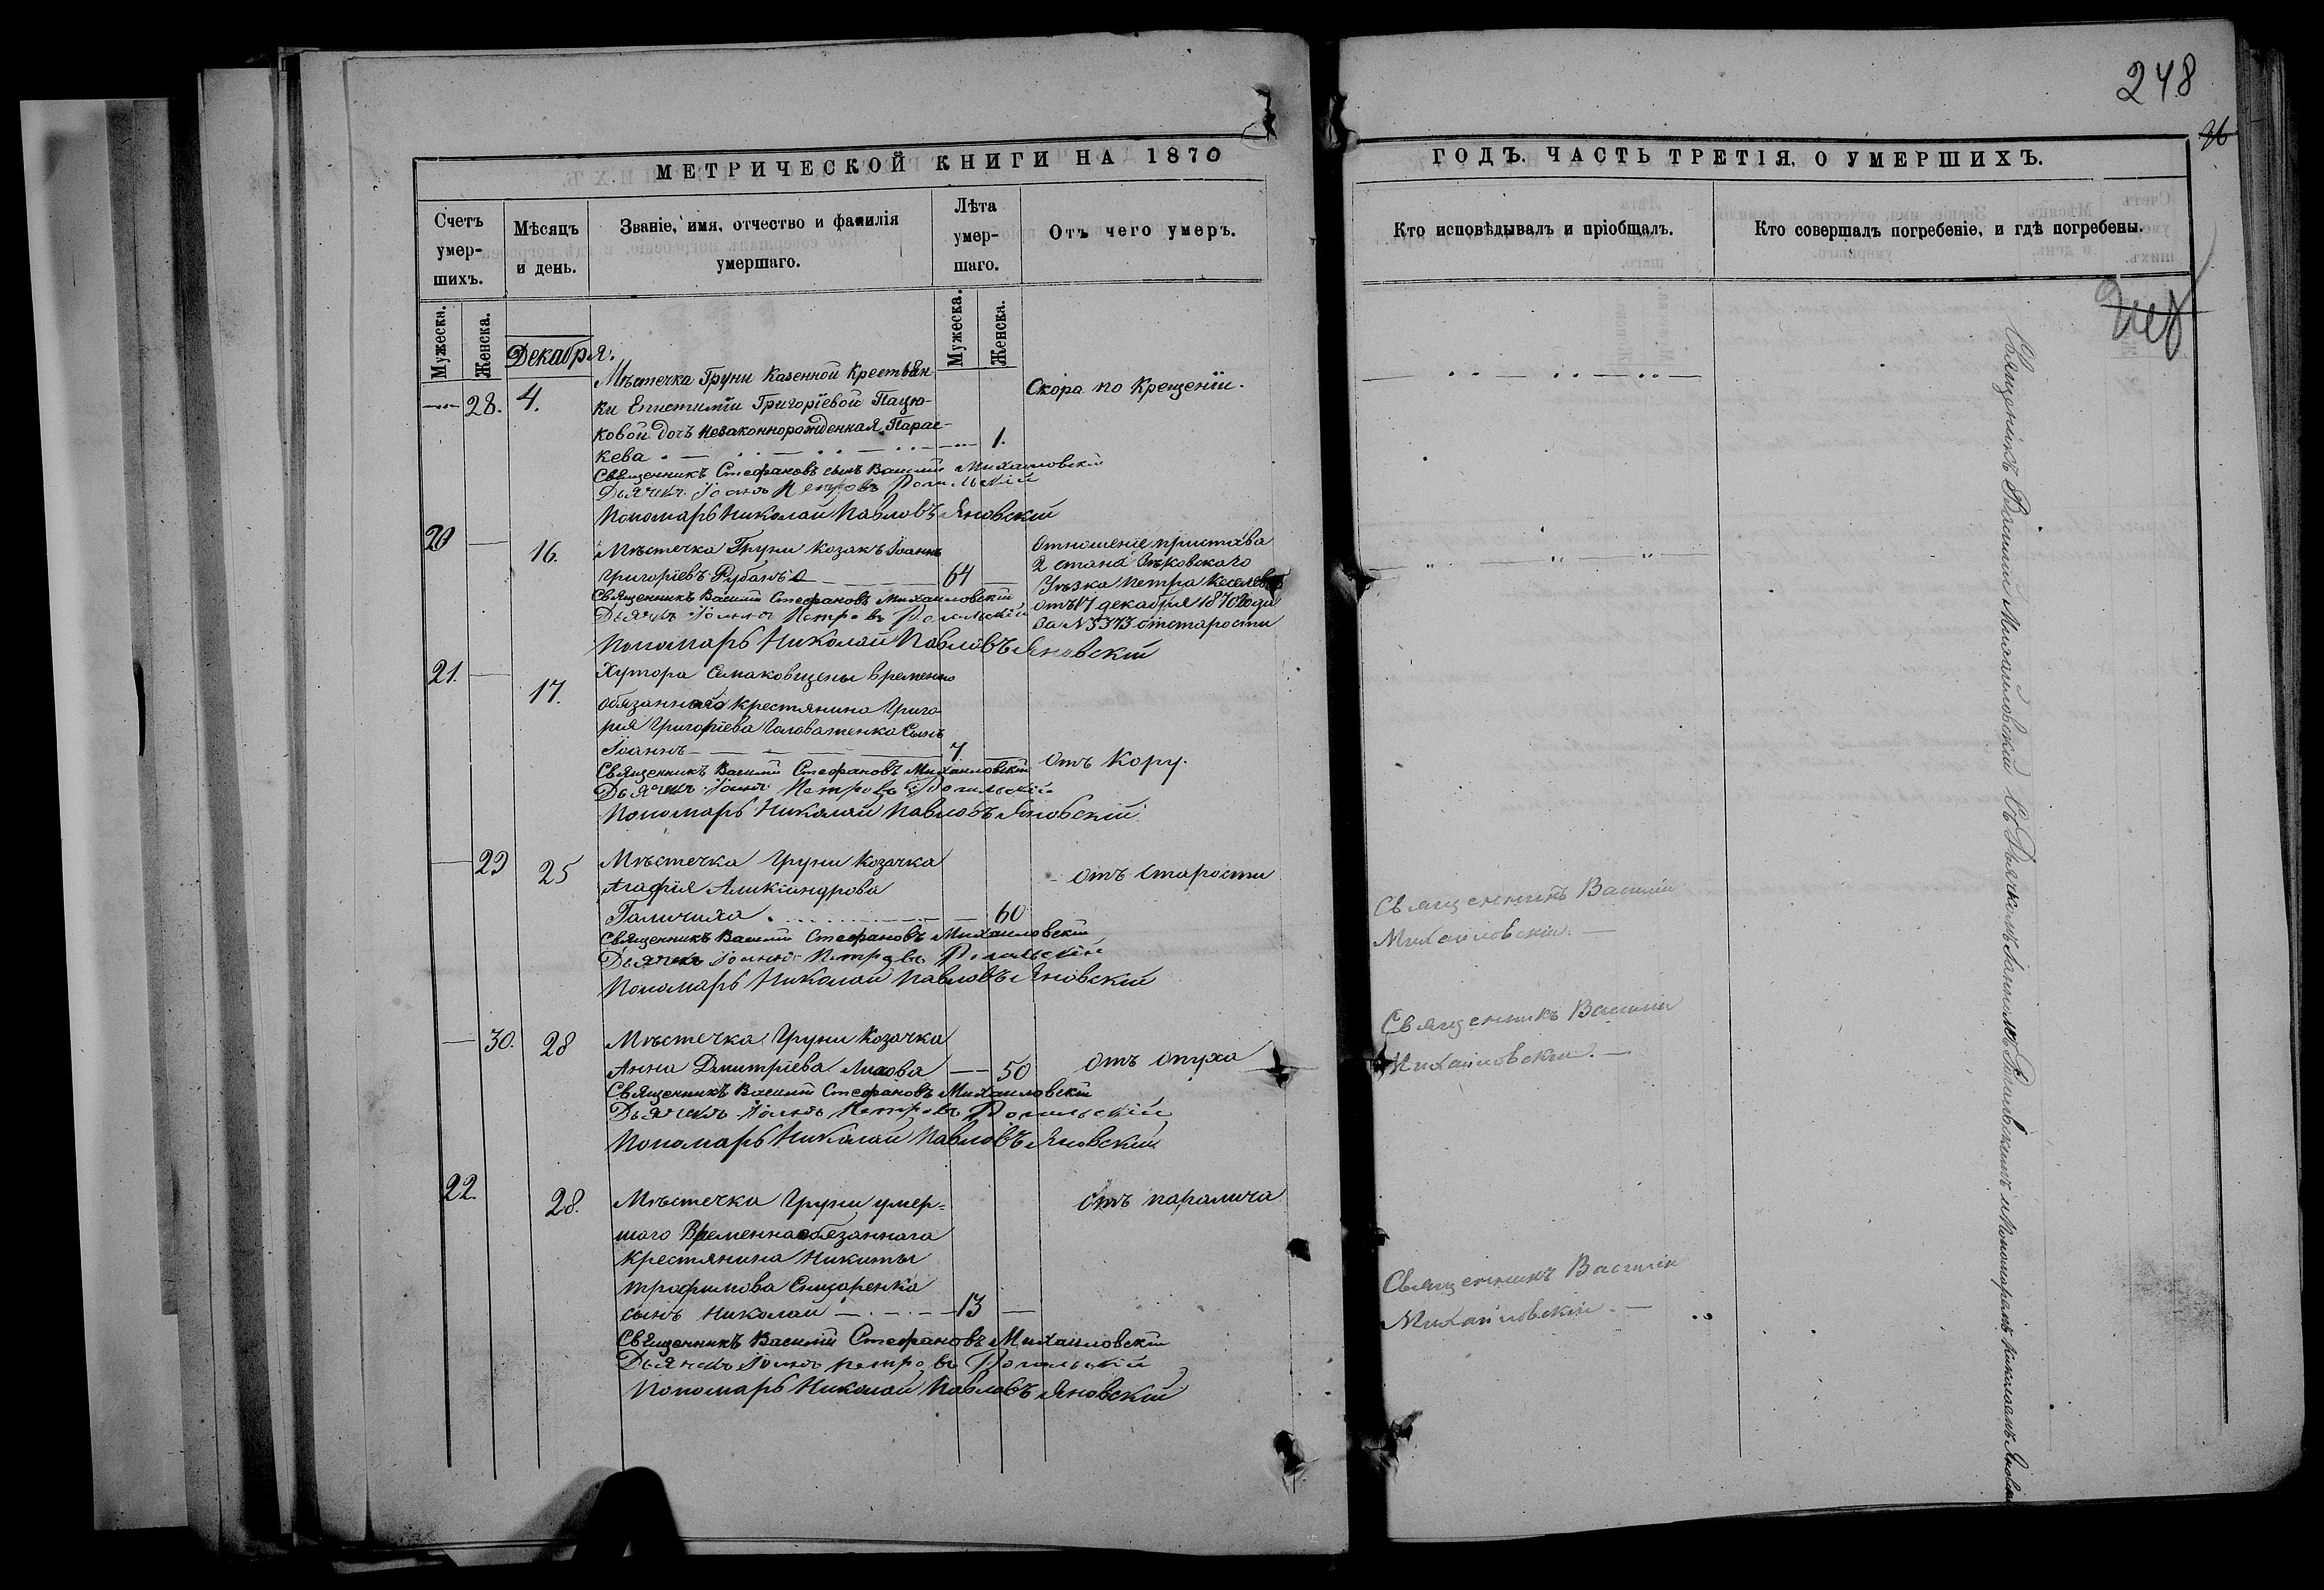 248
МЕТРИЧЕСКОЙ КНИГИ НА 1870
Счетъ умер-шихъ.
Мѣсяцъ и день.
Званіе, имя, отчество и фамилія умершаго.
Лѣта умер-шаго.
Отъ чего умеръ.
Мужеска.
Женска.
Мужеска.
Женска.
Декабря.
28. 4.
Мѣстечка Груни Казенной Крестьян-
ки Епистиміи Григоріевой Пацю-
ковой дочь незаконнорожденная Парас-
кева 1.
Скора по Крещеніи.
Священникъ Стефановъ сынъ Василій Михайловскій
Дьячекъ Іоаннъ Петровъ
Пономарь Николай Павловъ Яновскій
20 16.
Мѣстечка Груни Козакъ Іоаннъ
Григоріевъ Рубанъ 64
Отношеніе пристава
2 стана Зѣньковского
Уѣзда Петра
отъ 17 декабря 1870 года
За N 3373 отъ старости
Священникъ Василій Стефановъ Михайловскій
Дьячекъ Іоаннъ Петровъ
Пономарь Николай Павловъ Яновскій
21. 17.
Хутора Семаковщены временно
обязаннаго крестянина Григо
рія Григоріева Головатенка Сынъ
Іоаннъ 7
Отъ Кору.
Священникъ Василій Стефановъ Михайловскій
Дьячекъ Іоаннъ Петровъ
Пономарь Николай Павловъ Яновскій
29 25
Мѣстечка Груни Козачка
Агафія Александрова
Галичиха 60
отъ Старости
Священникъ Василій Стефановъ Михайловскій
Дьячекъ Іоаннъ Петровъ
Пономарь Николай Павловъ Яновскій
30. 28
Мѣстечка Груни Козачка
Анна Дмитріева Лихова 50
отъ опуха
Священникъ Василій Стефановъ Михайловскій
Дьячекъ Іоаннъ Петровъ
Пономарь Николай Павловъ Яновскій
22. 28.
Мѣстечка Груни умер-
шаго Временнаобязаннага
Крестянина Никиты
Трофимова
сынъ Николай 13
Отъ паралича
Священникъ Василій Стефановъ Михайловскій
Дьячекъ Іоаннъ Петровъ
Пономарь Николай Павловъ Яновскій
ГОДЪ. ЧАСТЬ ТРЕТІЯ, О УМЕРШИХЪ.
Кто исповѣдывалъ и пріобщалъ.
Кто совершалъ погребеніе, и гдѣ погребены.
Священникъ Василій
Михайловскій
Священникъ Василій
Михайловскій.
Священникъ Василій
Михайловскій.
Священникъ Василій Михайловскій Съ Дьячкомъ и Пономаремъ Николаемъ